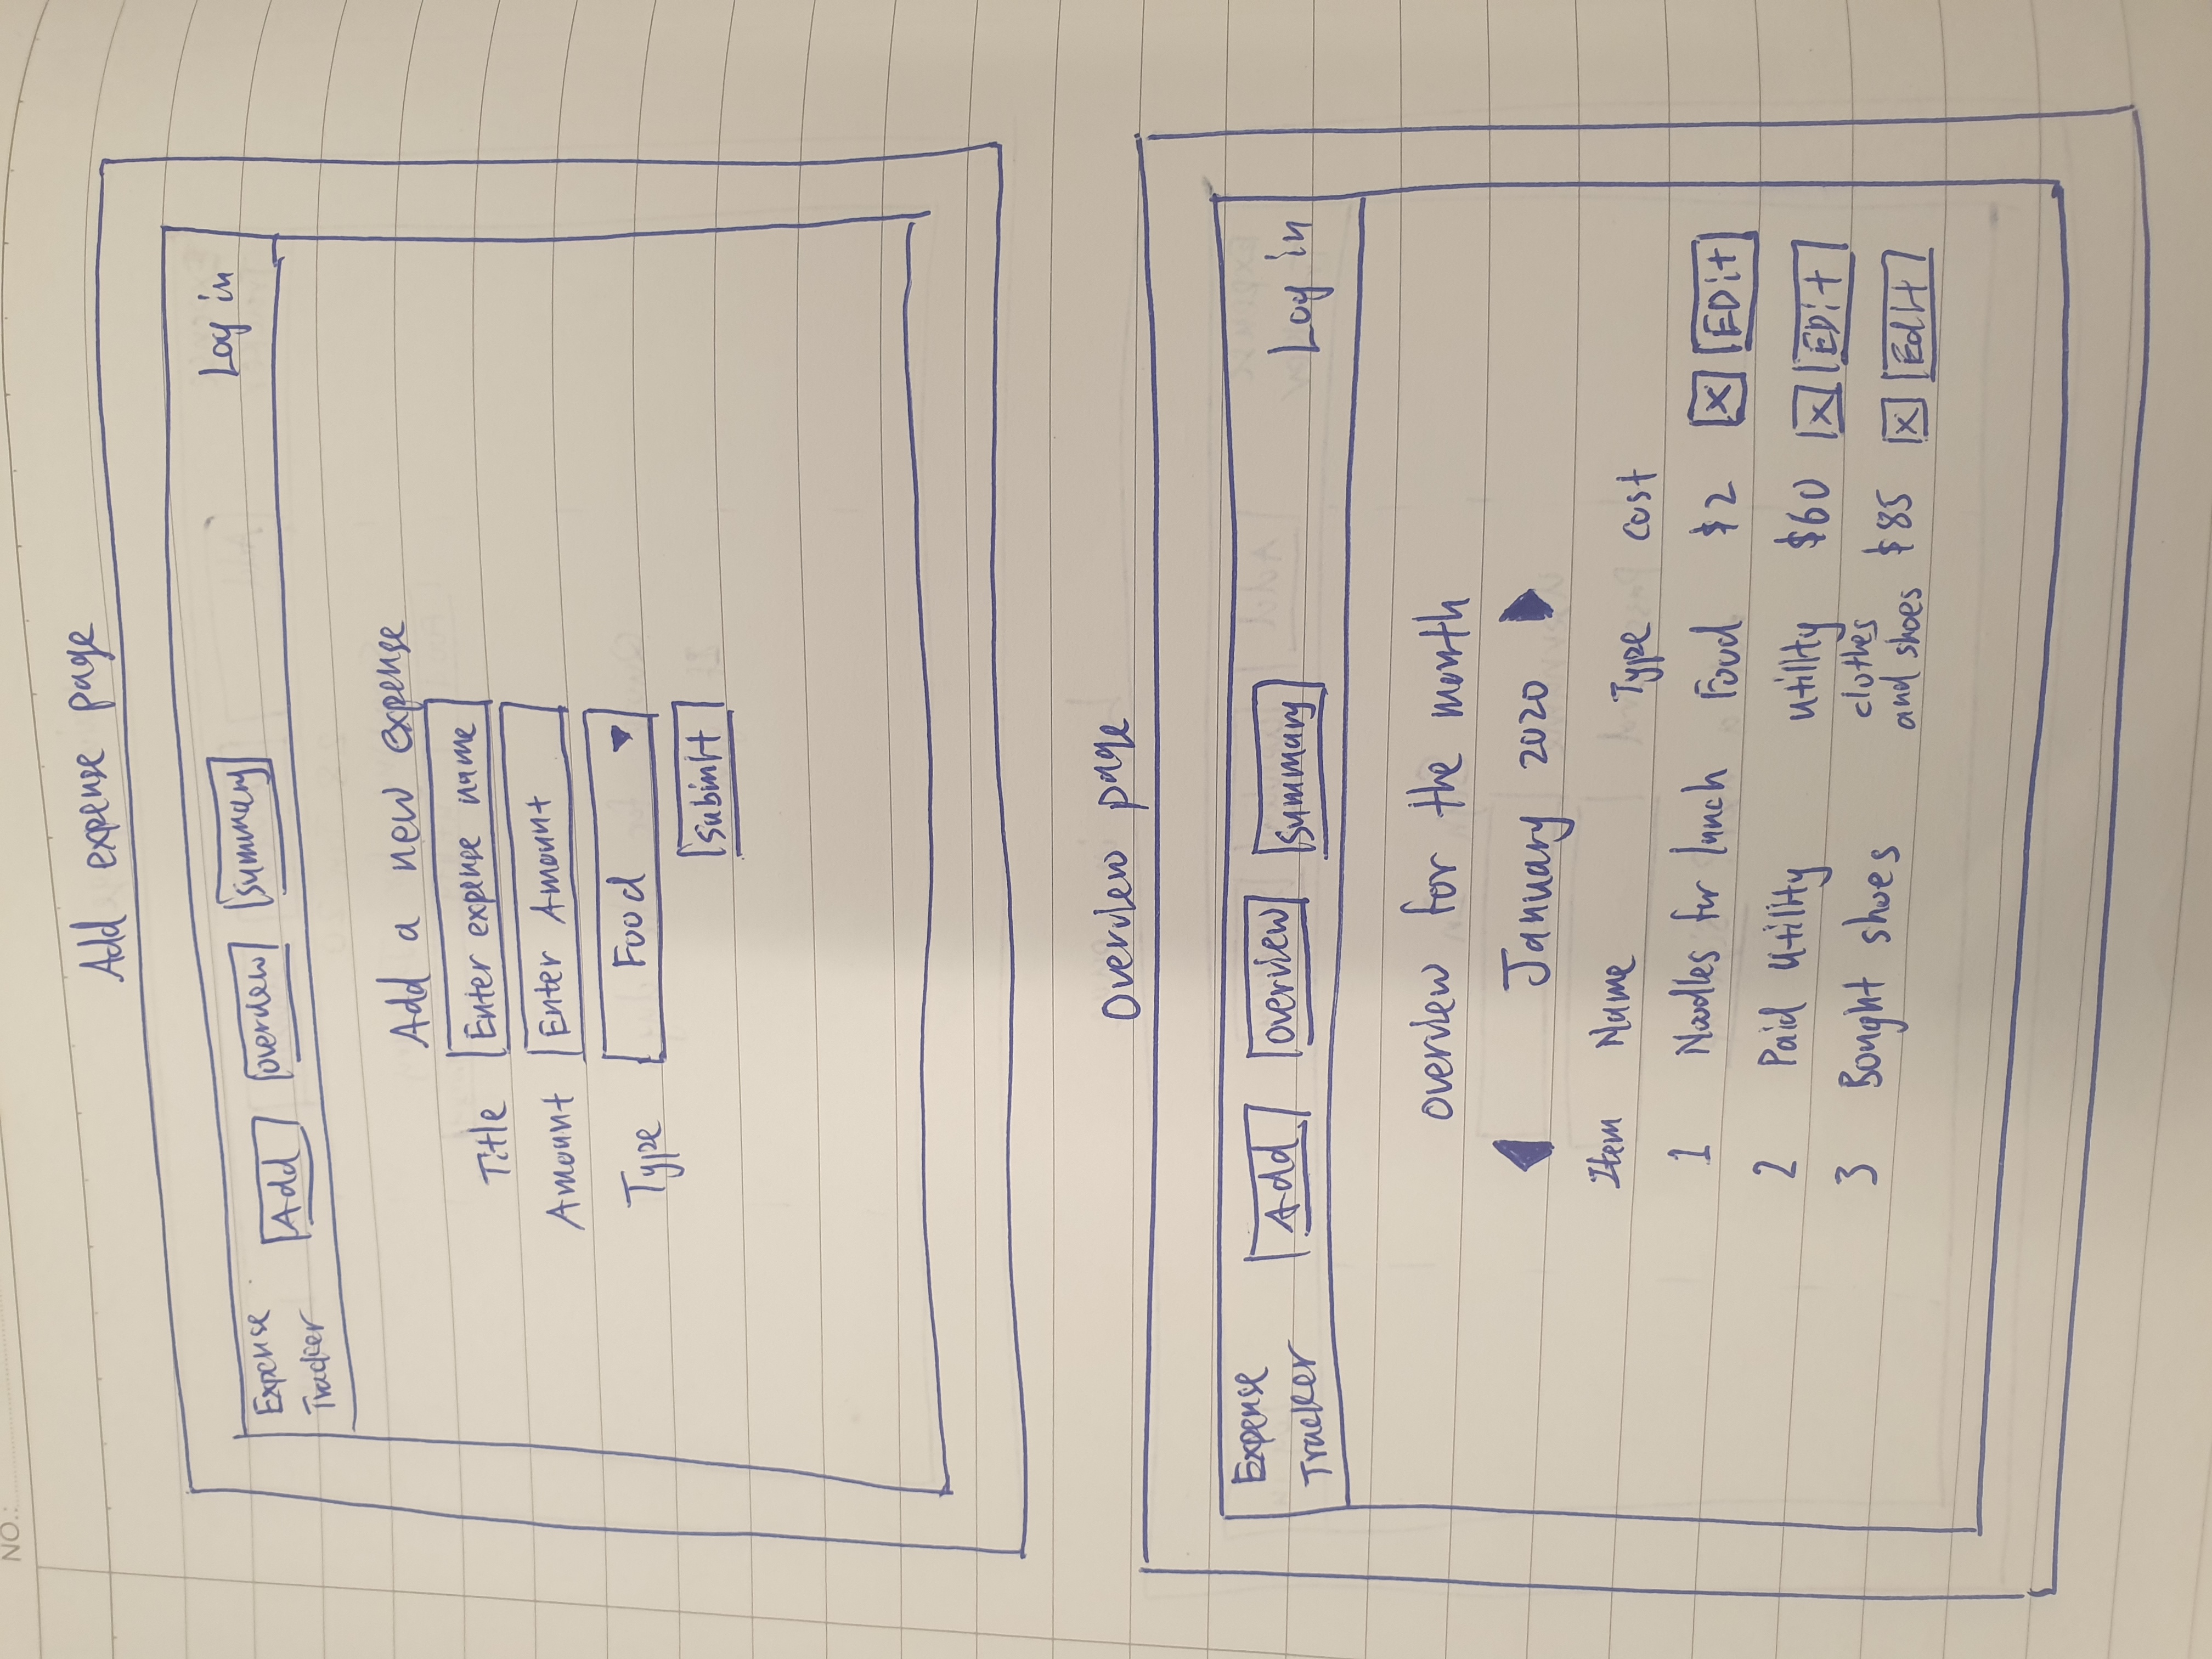 NO.:
Add expense page
Expense
Tracker
Add
overview
summary
Log in
Add a new expense
Title
Enter expense name
Amount
Enter Amount
Type
Food
Submit
Overview page
Expense
Tracker
Add
overview
summary
Log in
overview for the month
January 2020
Item Name Type cost
1 Noodles for lunch Food $2 X EDit
2 Paid utility utility $60 X EDit
3 Bought shoes clothes
and shoes $85 X Edit